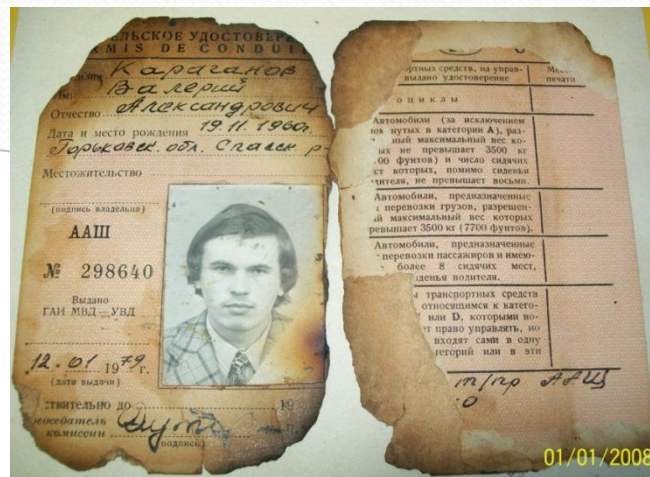 ЕЛЬСКОЕ УДОСТОВЕРЕ
RMIS DE CONDUI
Караганов
Валерий
Отчество Александрович
Дата и место рождения 19.11.1960г.
Горьковск. обл. Спасск. р-
Местожительство
(подпись владельца)
ААШ
№ 298640
Выдано
ГАИ МВД—УВД
12. 01 1979 г.
(дата выдачи)
ствительно до 19
редседатель
комиссии
(подпись)
ортных средств, на управ-
выдано удостоверение
печати
оциклы
Автомобили (за исключением
нутых в категории А), раз-
ный максимальный вес ко-
ых не превышает 3500 кг
00 фунтов) и число сидячих
ст которых, помимо сиденья
дителя, не превышает восьми.
Автомобили, предназначенные
перевозки грузов, разрешен-
й максимальный вес которых
ревышает 3500 кг (7700 фунтов).
Автомобили, предназначенные
перевозки пассажиров и имею-
более 8 сидячих мест,
денья водителя.
ы транспортных средств
относящимся к катего-
или D, которыми во-
ет право управлять, но
входят сами в одну
тегорий или в эти
т/пр ААЩ
01/01/2008